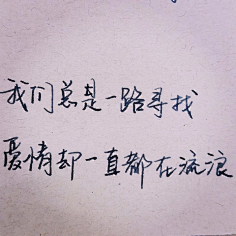 我们总是一路寻找
爱情却一直都在流浪